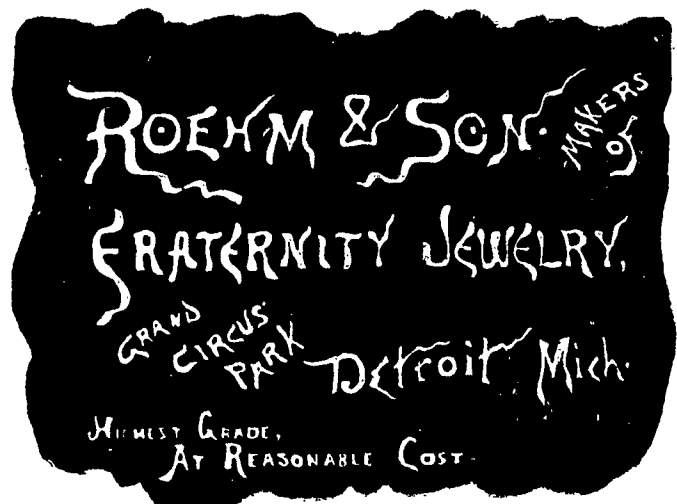 ROEHM & SON. MAKERS OF
FRATERNITY JEWELRY,
GRAND CIRCUS PARK
Detroit Mich.
HIGHEST GRADE,
AT REASONABLE COST.